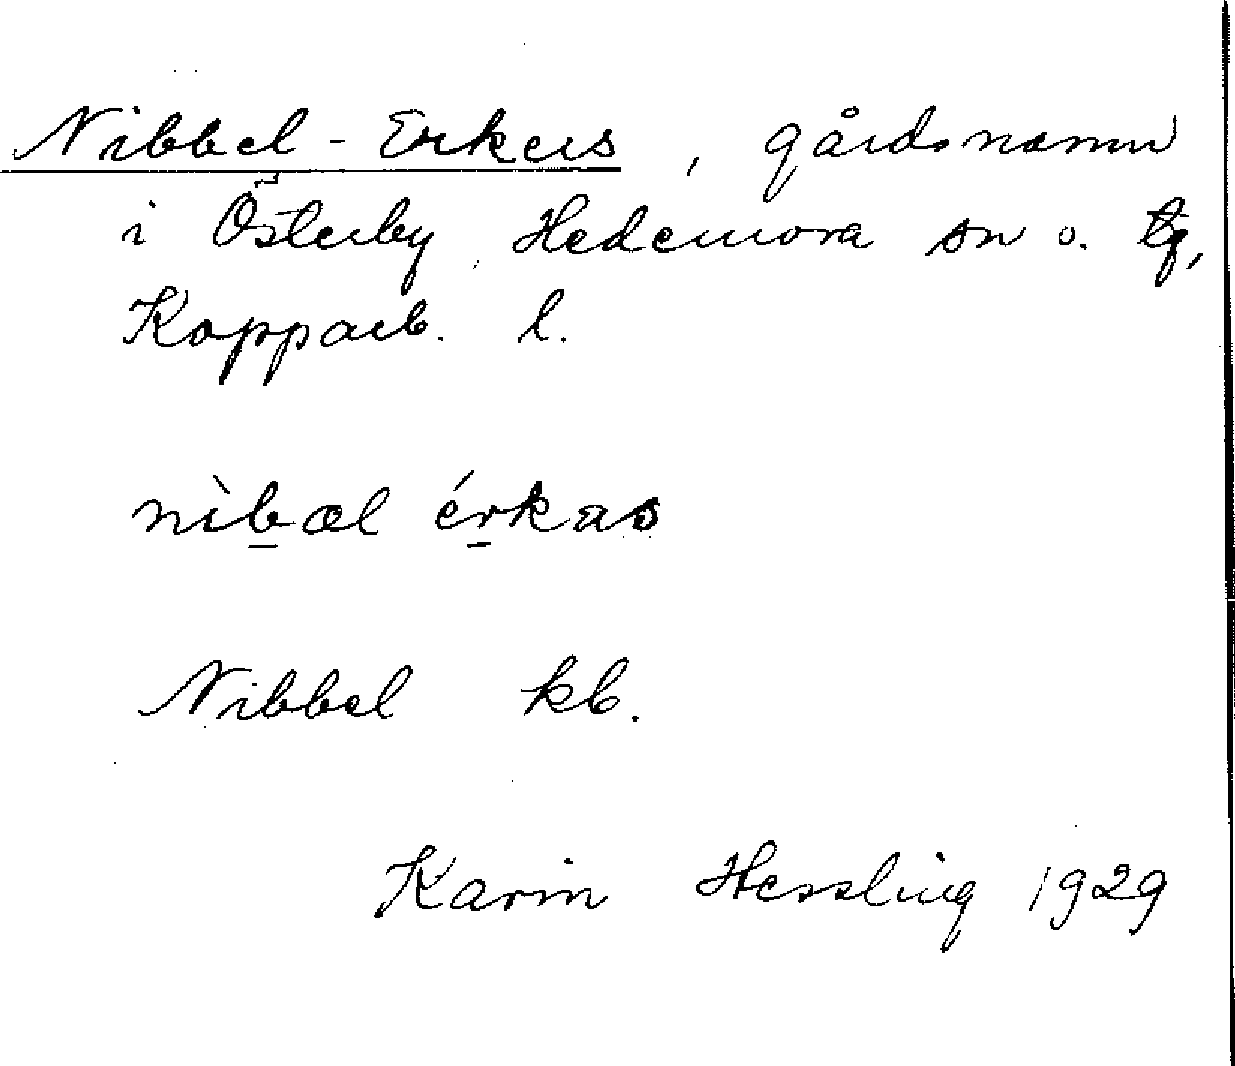 Nibbel-Erkers, gårdsnamn
i Österby, Hedemora sn o. tg,
Kopparb. l.
nìbæl érkas
Nibbel kb.
Karin Hessling 1929